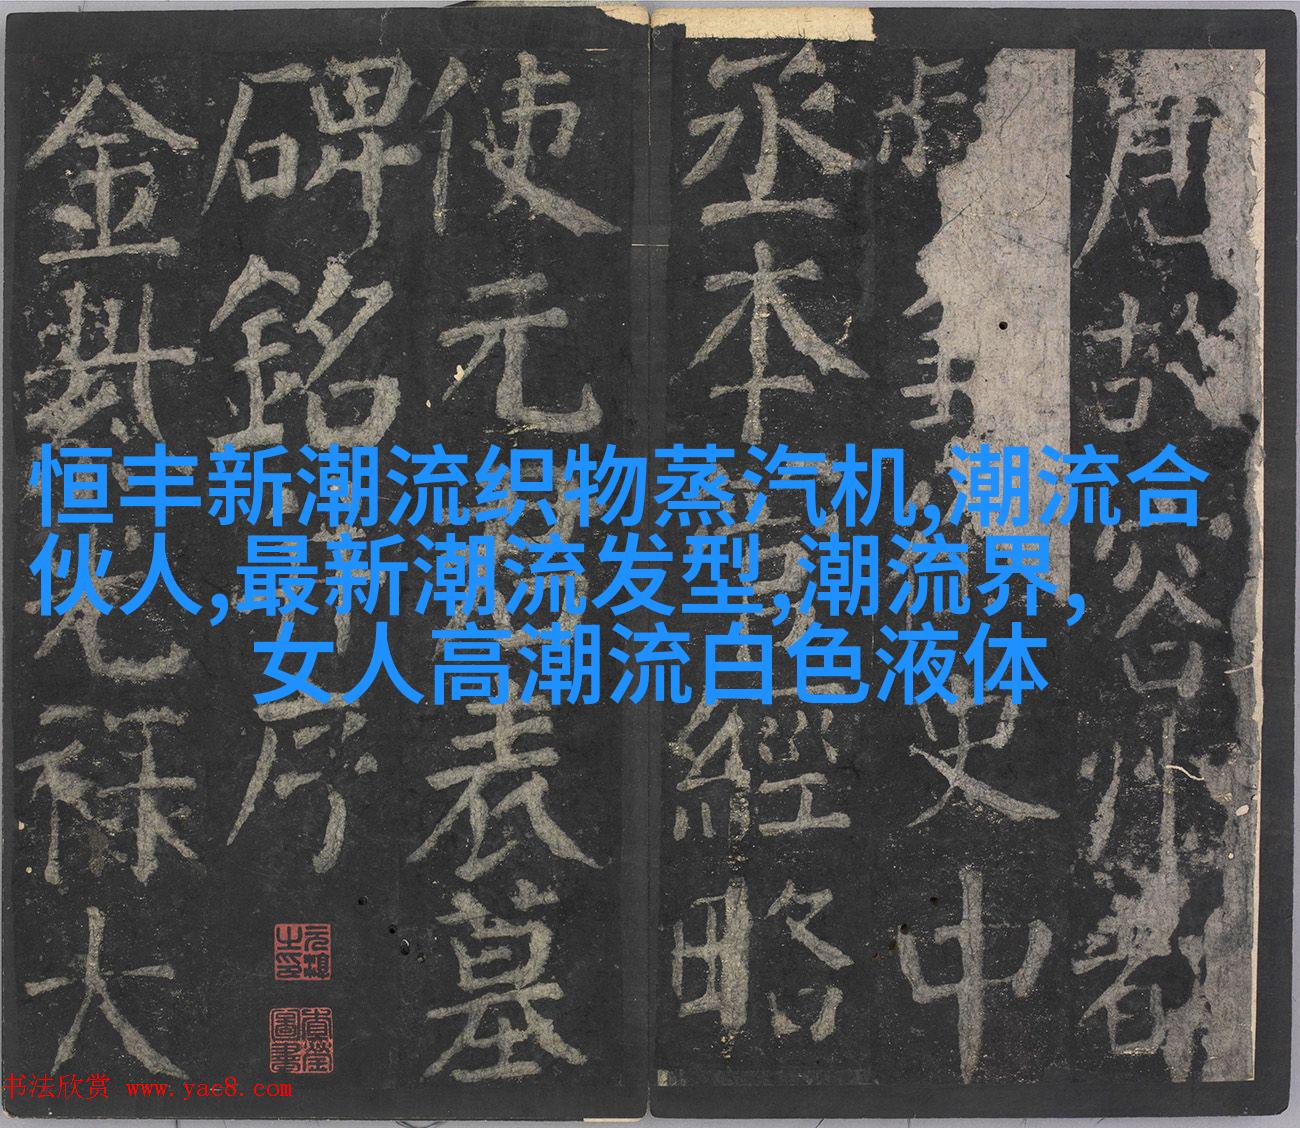 恒丰新潮流织物蒸汽机,潮流合
伙人,最新潮流发型,潮流界,
女人高潮流白色液体
唐故容州都
史中
丞本管經略
使元君表墓
碑銘并序
金光祿大
书法欣赏 www.yac8.com